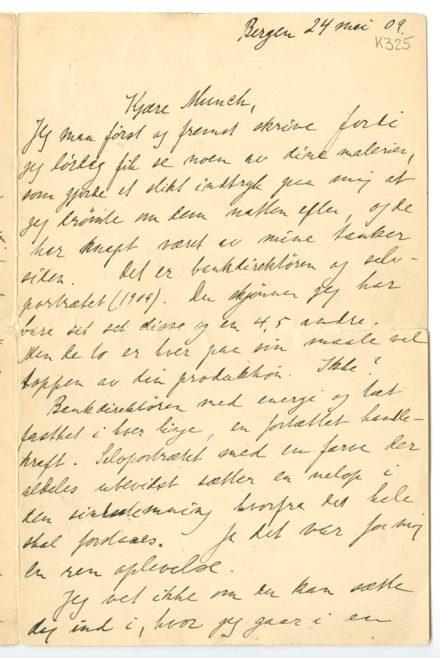 Bergen 24 mai 09.
K325
Kjære Munch,
Jeg maa först og fremst skrive fordi
jeg lördag fik se noen av dine malerier,
som gjorde et slikt indtryk paa mig at
jeg drömte om dem natten efter, og de
har knapt været av mine tanker
siden. Det er bankdirektören og selv-
portrætet (1909). Du skjönner jeg har
bare set disse og en 4,5 andre.
Men de to er hver paa sin maate vel
toppen av din produktion. Ikke?
Bankdirektören med energi og tæt
fasthet i hver linje, en fortættet handle-
kraft. Selvportrætet med en farve der
aldeles ubevidst sætter en i
den hvorfra det hele
skal fordaues. Ja det var for mig
en ren oplevelse.
Jeg vet ikke om du kan sætte
dig ind i, hvor jeg gaar i en